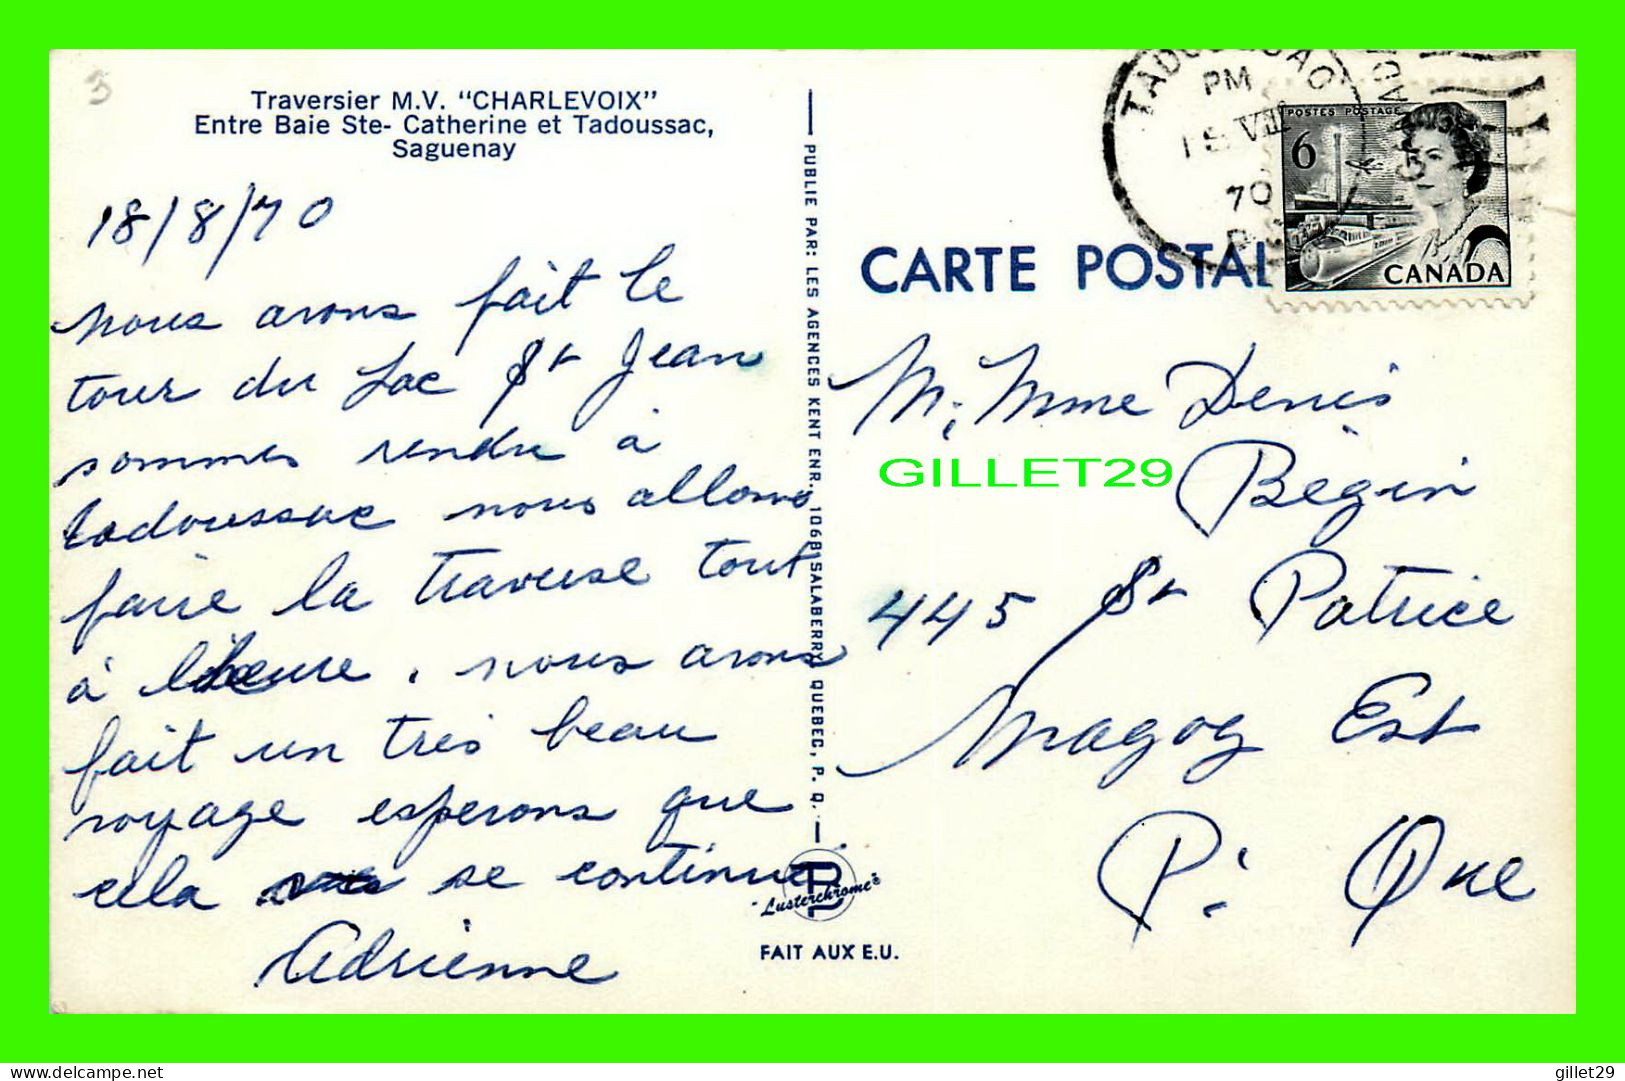 3
Traversier M.V. "CHARLEVOIX"
Entre Baie Ste- Catherine et Tadoussac,
Saguenay
18/8/70
nous avons fait le
tour du Lac St Jean
sommes rendu à
tadoussac nous allons
faire la traverse tout
à l'heure. nous avons
fait un très beau
voyage esperons que
cela se continue
Adrienne
PUBLIE PAR: LES AGENCES KENT ENR., 1068 SALABERRY, QUEBEC, P. Q.
"Lusterchrome"
FAIT AUX E.U.
CARTE POSTAL
TADOUSSAC
PM
18 VIII
70
P.Q.
POSTES POSTAGE
6
CANADA
M. Mme Denis
Bégin
GILLET29
445 St Patrice
Magog Est
P. Que
delcampe.net
gillet29